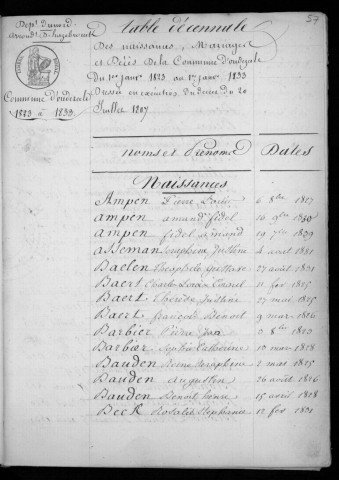 57
Dépt. Du nord
Arrondt. D'hazebrouck
Commune d'oudezeele
1823 à 1833
table décennale
Des naissances, Mariages
et Décès De la Commune D'oudezeele
Du 1er janvr 1823 au 1er janvr 1833
Dressée en exécution Du décret Du 20
Juillet 1807
noms et prénoms Dates
Naissances
Ampen 6 8bre 1827
ampen amand fidel 10 9bre 1830
ampen fidel amand 19 7bre 1829
asseman Séraphine Justine 4 avril 1831
Baelen Théophile 27 août 1831
Baert Charles Louis 11 fév 1825
Baert Thérèse Justine 27 mai 1825
Baert françois Benoit 9 mar 1826
Barbier Pierre Jean 3 8bre 1823
Barbier Sophie Catherine 10 mar 1828
Bauden Reine Séraphine 2 mar 1825
Bauden augustin 26 août 1826
Bauden Benoit 15 avril 1828
Beck Rosalie Stéphanie 12 fév 1831